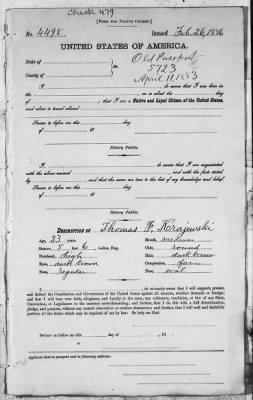 Check 479
[FORM FOR NATIVE CITIZEN.]
No. 4498 Issued Feb. 26, 1886
UNITED STATES OF AMERICA.
State of Old Passport
ss. 5723
County of April 11, 1883
I, do swear that I was born
in on or about the day of
; that I am a Native and Loyal Citizen of the United States,
and about to travel abroad
Sworn to before me this day
of , 18
Notary Public.
I, do swear that I am acquainted
with the above-named , and with the facts stated
by and that the same are true to the best of my knowledge and belief.
Sworn to before me this day
of , 18
Notary Public.
DESCRIPTION OF Thomas F. Krajewski
Age, 23 years. Mouth, medium
Stature, 5 ft 6 inches, Eng. Chin, round
Forehead, high Hair, dark brown
Eyes, dark brown Complexion,
Nose, regular Face, oval
I, do solemnly swear that I will support, protect,
and defend the Constitution and Government of the United States against all enemies, whether domestic or foreign;
and that I will bear true faith, allegiance, and loyalty to the same, any ordinance, resolution, or law of any State,
Convention, or Legislature to the contrary notwithstanding; and further, that I do this with a full determination,
pledge, and purpose, without any mental reservation or evasion whatsoever; and further, that I will well and faithfully
perform all the duties which may be required of me by law: So help me God.
Sworn to before me this day of , 18
Applicant desires passport and to following address: